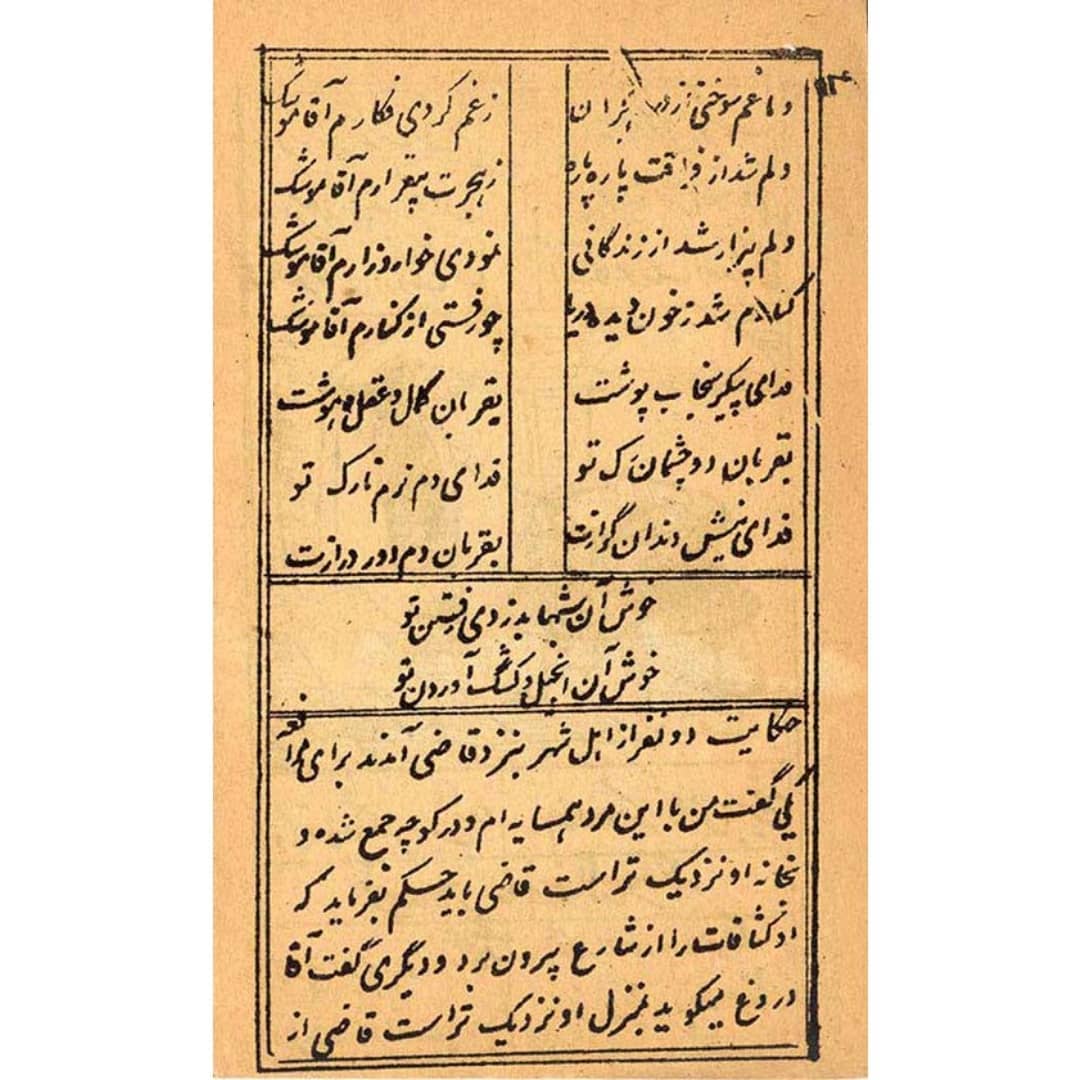 دماغم سوختی از هجران زغم کردی فکارم آقا موشک
دلم شد از فراقت پاره پاره زهجرت بیقرارم آقا موشک
دلم بیزار شد از زندگانی نمودی خوار و زارم آقا موشک
کنارم شد زخون دیده دریا چو رفتی از کنارم آقا موشک
فدای پیکر سنجاب پوشت بقربان کمال و عقل و هوشت
بقربان دو چشمان رک تو فدای دم نرم نازک تو
فدای نیش دندان گرازت بقربان دم دور درازت
خوش آن شبها بدزدی رفتن تو
خوش آن انجیل و کشک آوردن تو
حکایت دو نفر از اهل شهر بنزد قاضی آمدند برای مرافعه
یکی گفت من با این مرد همسایه ام و در کوچه جمع شده و
بخانه او نزدیک تر است قاضی باید حکم بفرماید که
او کثافات را از شارع بیرون برد و دیگری گفت آقا
دروغ میگوید بمنزل او نزدیک تر است قاضی از